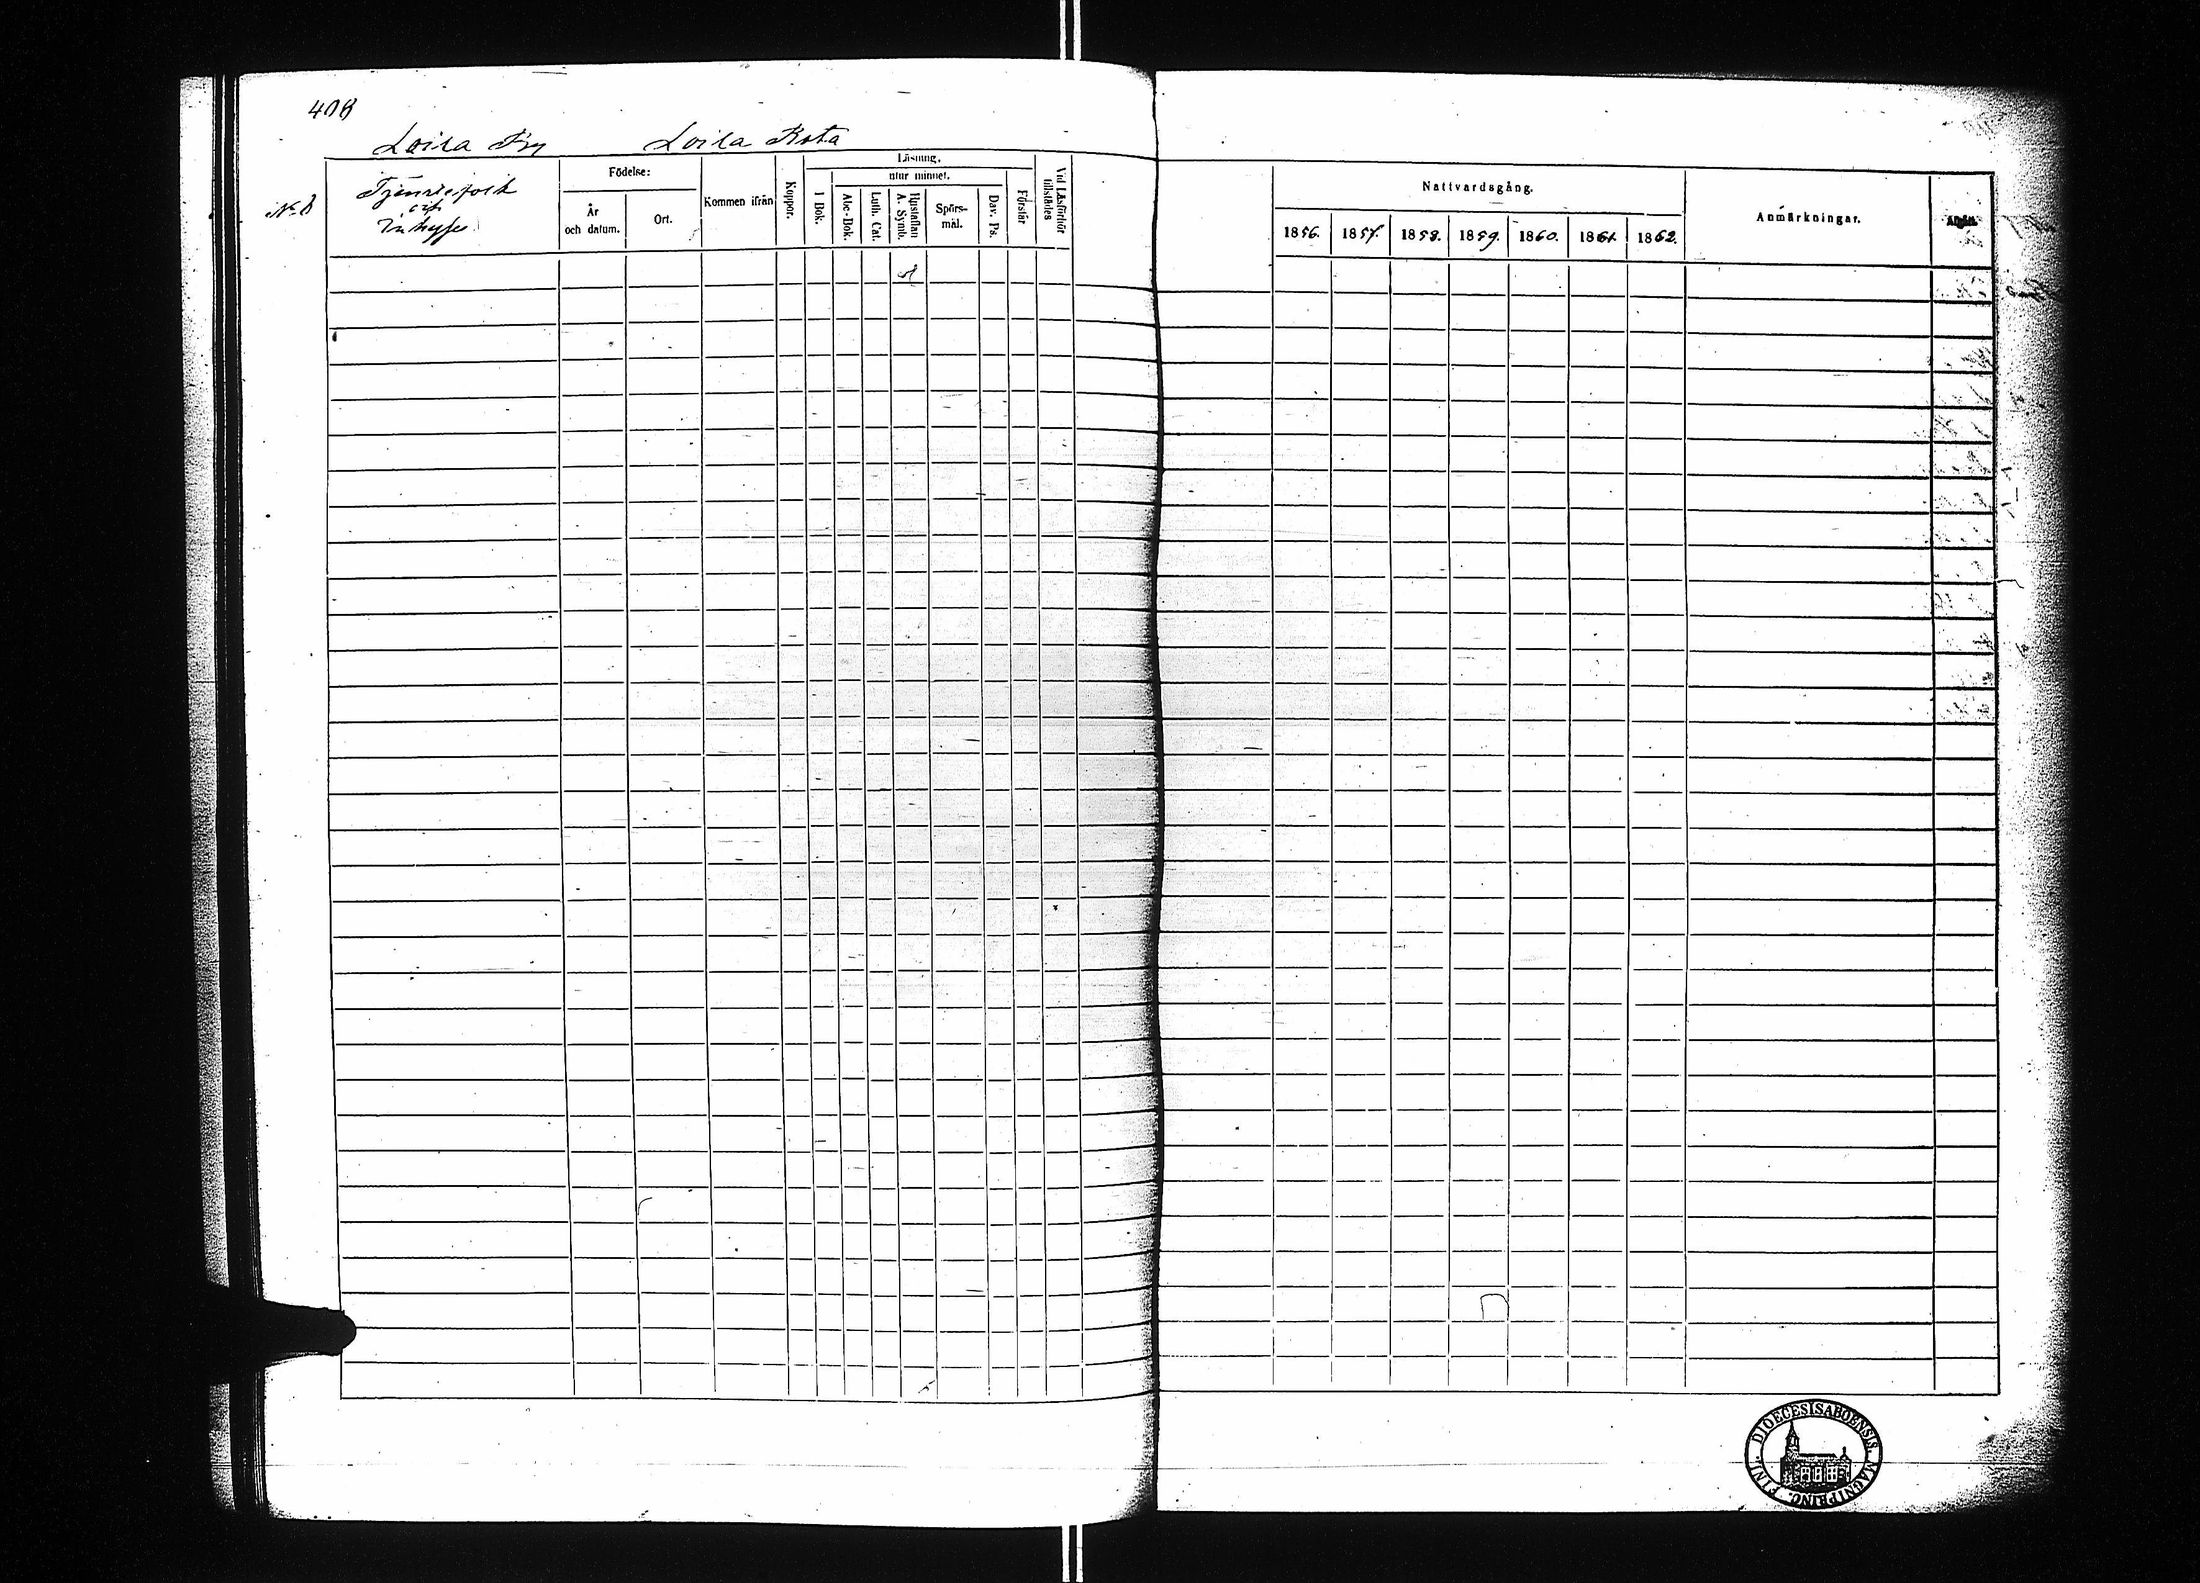 408
Loila By Loila Rota
No 8
Tjenstefolk
och
Inhyses
Födelse:
År
och datum.
Ort.
Kommen ifrån
Koppor.
Läsning.
utur minnet.
I Bok.
Abc-Bok.
Luth. Cat.
Hustaflan
A. Symb.
Spörs-
mål.
Dav. Ps.
Förstår
Vid Läsförhör
tillstädes
Nattvardsgång.
1856. 1857. 1858. 1859. 1860. 1861. 1862.
Anmärkningar.
DIOECESIS ABOENSIS. MAGNI PRINC. FINL.